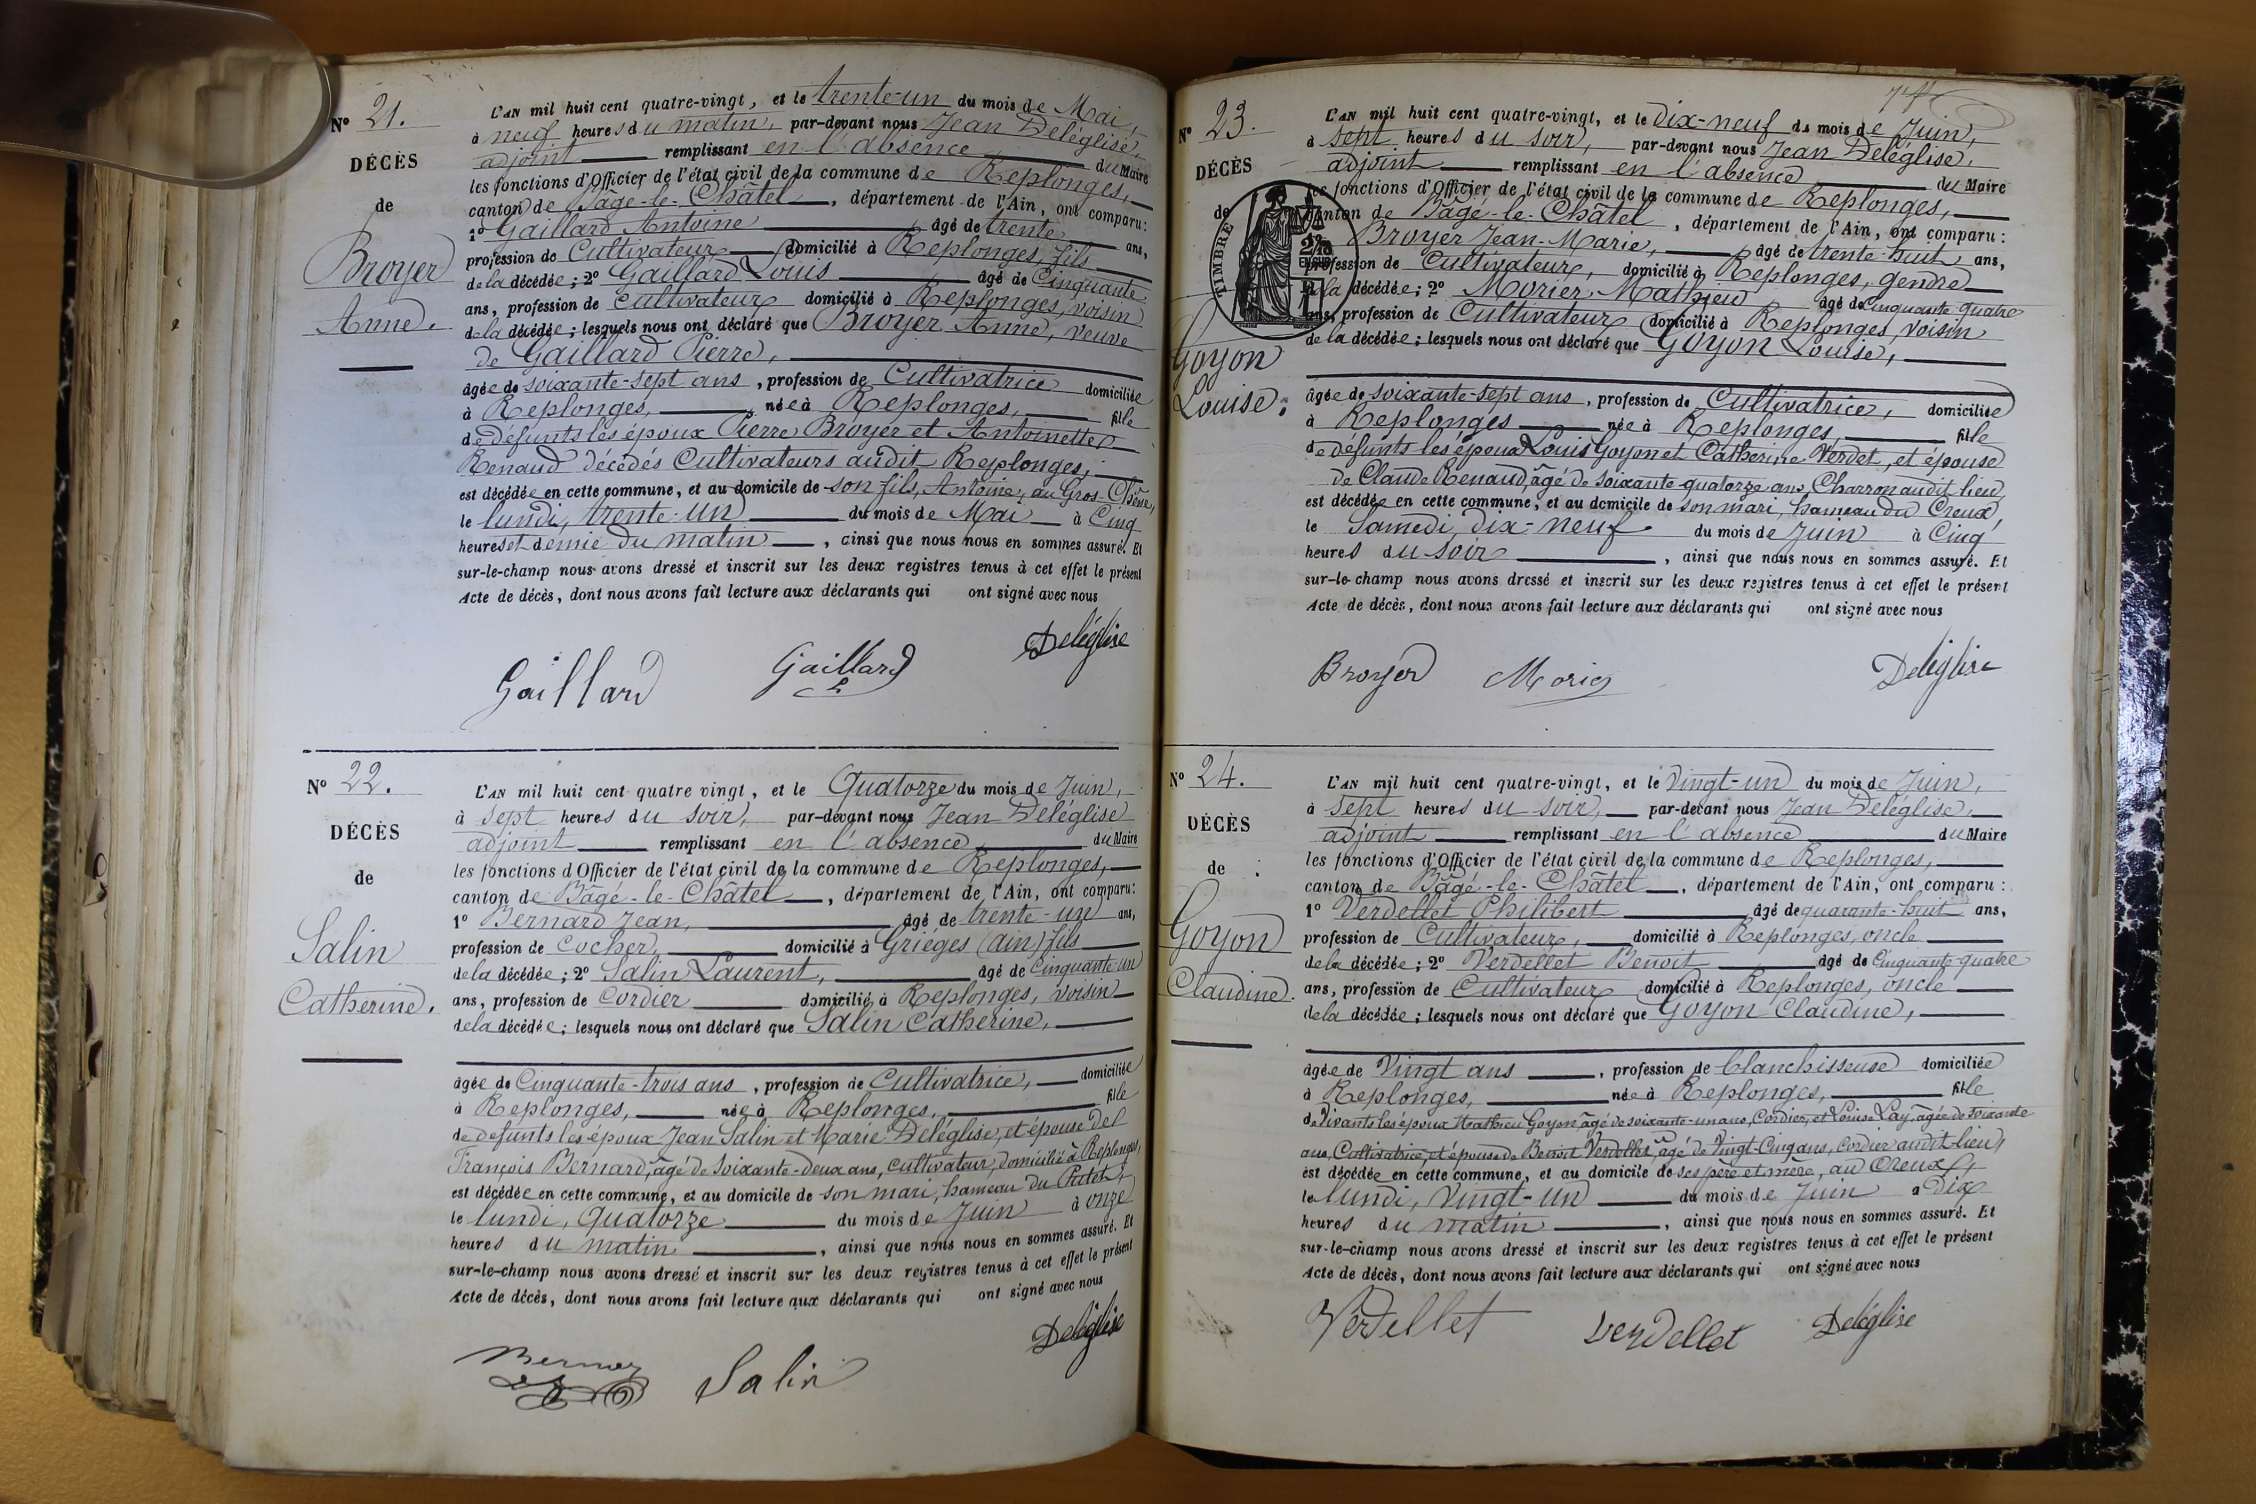 Nº 21.
DÉCÈS
de
Broyer
Anne.
L'AN mil huit cent quatre-vingt, et le trente-un du mois de Mai,
à neuf heures du matin, par-devant nous Jean Deléglise,
adjoint remplissant en l'absence du Maire
les fonctions d'Officier de l'état civil de la commune de Replonges,
canton de Bâgé-le-Châtel, département de l'Ain, ont comparu:
1º Gaillard Antoine âgé de trente ans,
profession de Cultivateur domicilié à Replonges, fils
de la décédée; 2º Gaillard Louis âgé de Cinquante
ans, profession de Cultivateur domicilié à Replonges, voisin
de la décédée; lesquels nous ont déclaré que Broyer Anne, veuve
de Gaillard Pierre,
âgée de soixante-sept ans, profession de Cultivatrice domiciliée
à Replonges, née à Replonges, fille
de défunts les époux Pierre Broyer et Antoinette
Renaud décédés Cultivateurs audit Replonges,
est décédée en cette commune, et au domicile de son fils, Antoine, au Gros-Chêne,
le lundi, trente-un du mois de Mai à Cinq
heures et demie du matin, ainsi que nous nous en sommes assuré. Et
sur-le-champ nous avons dressé et inscrit sur les deux registres tenus à cet effet le présent
Acte de décès, dont nous avons fait lecture aux déclarants qui ont signé avec nous
Gaillard Gaillard L Deléglise
Nº 22.
DÉCÈS
de
Salin
Catherine.
L'AN mil huit cent quatre vingt, et le Quatorze du mois de Juin,
à sept heures du soir, par-devant nous Jean Deléglise
adjoint remplissant en l'absence du Maire
les fonctions d'Officier de l'état civil de la commune de Replonges,
canton de Bâgé-le-Châtel, département de l'Ain, ont comparu:
1º Bernard Jean, âgé de trente-un ans,
profession de cocher, domicilié à Grièges (Ain) fils
de la décédée; 2º Salin Laurent, âgé de Cinquante un
ans, profession de Cordier domicilié à Replonges, voisin
de la décédée; lesquels nous ont déclaré que Salin Catherine,
âgée de Cinquante-trois ans, profession de Cultivatrice, domiciliée
à Replonges, née à Replonges, fille
de défunts les époux Jean Salin et Marie Deléglise, et épouse de
François Bernard, âgé de Soixante-deux ans, cultivateur, domicilié à Replonges,
est décédée en cette commune, et au domicile de son mari, hameau du
le lundi, Quatorze du mois de Juin à onze
heures du matin, ainsi que nous nous en sommes assuré. Et
sur-le-champ nous avons dressé et inscrit sur les deux registres tenus à cet effet le présent
Acte de décès, dont nous avons fait lecture aux déclarants qui ont signé avec nous
Salin Deléglise
Nº 23.
DÉCÈS
de
TIMBRE
Goyon
Louise.
L'AN mil huit cent quatre-vingt, et le Dix-neuf du mois de Juin,
à sept heures du soir, par-devant nous Jean Deléglise,
adjoint remplissant en l'absence du Maire
les fonctions d'Officier de l'état civil de la commune de Replonges,
canton de Bâgé-le-Châtel, département de l'Ain, ont comparu:
Broyer Jean-Marie, âgé de trente-huit ans,
profession de Cultivateur, domicilié à Replonges, gendre
de la décédée; 2º Morier Mathieu âgé de Cinquante quatre
ans, profession de Cultivateur domicilié à Replonges, voisin
de la décédée; lesquels nous ont déclaré que Goyon Louise,
âgée de soixante-sept ans, profession de Cultivatrice, domiciliée
à Replonges née à Replonges, fille
de défunts les époux Louis Goyon et Catherine Verdet, et épouse
de Claude Renaud, âgé de soixante-quatorze ans, Charron audit lieu,
est décédée en cette commune, et au domicile de son mari, hameau du Creux,
le Samedi, dix-neuf du mois de Juin à Cinq
heures du soir, ainsi que nous nous en sommes assuré. Et
sur-le-champ nous avons dressé et inscrit sur les deux registres tenus à cet effet le présent
Acte de décès, dont nous avons fait lecture aux déclarants qui ont signé avec nous
Broyer Deléglise
Nº 24.
DÉCÈS
de
Goyon
Claudine.
L'AN mil huit cent quatre-vingt, et le Vingt-un du mois de Juin,
à sept heures du soir, par-devant nous Jean Deléglise,
adjoint remplissant en l'absence du Maire
les fonctions d'Officier de l'état civil de la commune de Replonges,
canton de Bâgé-le-Châtel, département de l'Ain, ont comparu:
1º Verdellet Philibert âgé de quarante-huit ans,
profession de Cultivateur, domicilié à Replonges, oncle
de la décédée; 2º Verdellet Benoit âgé de Cinquante-quatre
ans, profession de Cultivateur domicilié à Replonges, oncle
de la décédée; lesquels nous ont déclaré que Goyon Claudine,
âgée de Vingt ans, profession de blanchisseuse domiciliée
à Replonges, née à Replonges, fille
de Vivants les époux Mathieu Goyon âgé de soixante-un ans, Cordier, et Louise Lay, âgée de Soixante
ans, Cultivatrice, et épouse de Benoit Verdellet, âgé de Vingt-Cinq ans, Cordier audit lieu,
est décédée en cette commune, et au domicile de ses père et mère, au Creux,
le lundi, Vingt-un du mois de Juin à Dix
heures du matin, ainsi que nous nous en sommes assuré. Et
sur-le-champ nous avons dressé et inscrit sur les deux registres tenus à cet effet le présent
Acte de décès, dont nous avons fait lecture aux déclarants qui ont signé avec nous
Verdellet Verdellet Deléglise